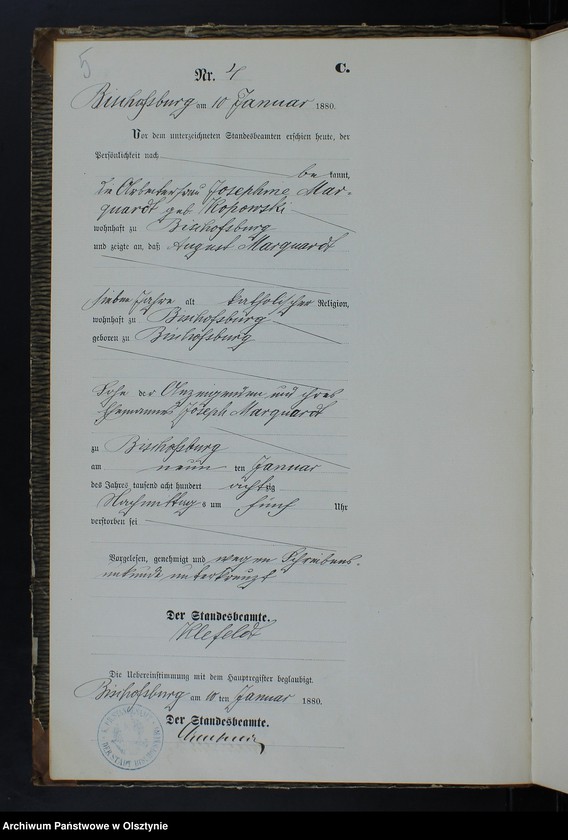 5
Nr. 4 C.
Bischofsburg am 10 Januar 1880.
Vor dem unterzeichneten Standesbeamten erschien heute, der
Persönlichkeit nach
be kannt,
die Arbeiterfrau Josephine Mar-
quardt geb. Kopowski
wohnhaft zu Bischofsburg
und zeigte an, daß August Marquardt
sieben Jahre alt katholischer Religion,
wohnhaft zu Bischofsburg
geboren zu Bischofsburg
Sohn der Anzeigenden und ihres
Ehemannes Joseph Marquardt
zu Bischofsburg
am neun ten Januar
des Jahres tausend acht hundert achtzig
Nachmittag s um fünf Uhr
verstorben sei
Vorgelesen, genehmigt und wegen Schreibens-
unkunde unterkreuzt
Der Standesbeamte.
Klefeldt
Die Uebereinstimmung mit dem Hauptregister beglaubigt.
Bischofsburg am 10 ten Januar 1880.
Der Standesbeamte.
Archiwum Państwowe w Olsztynie